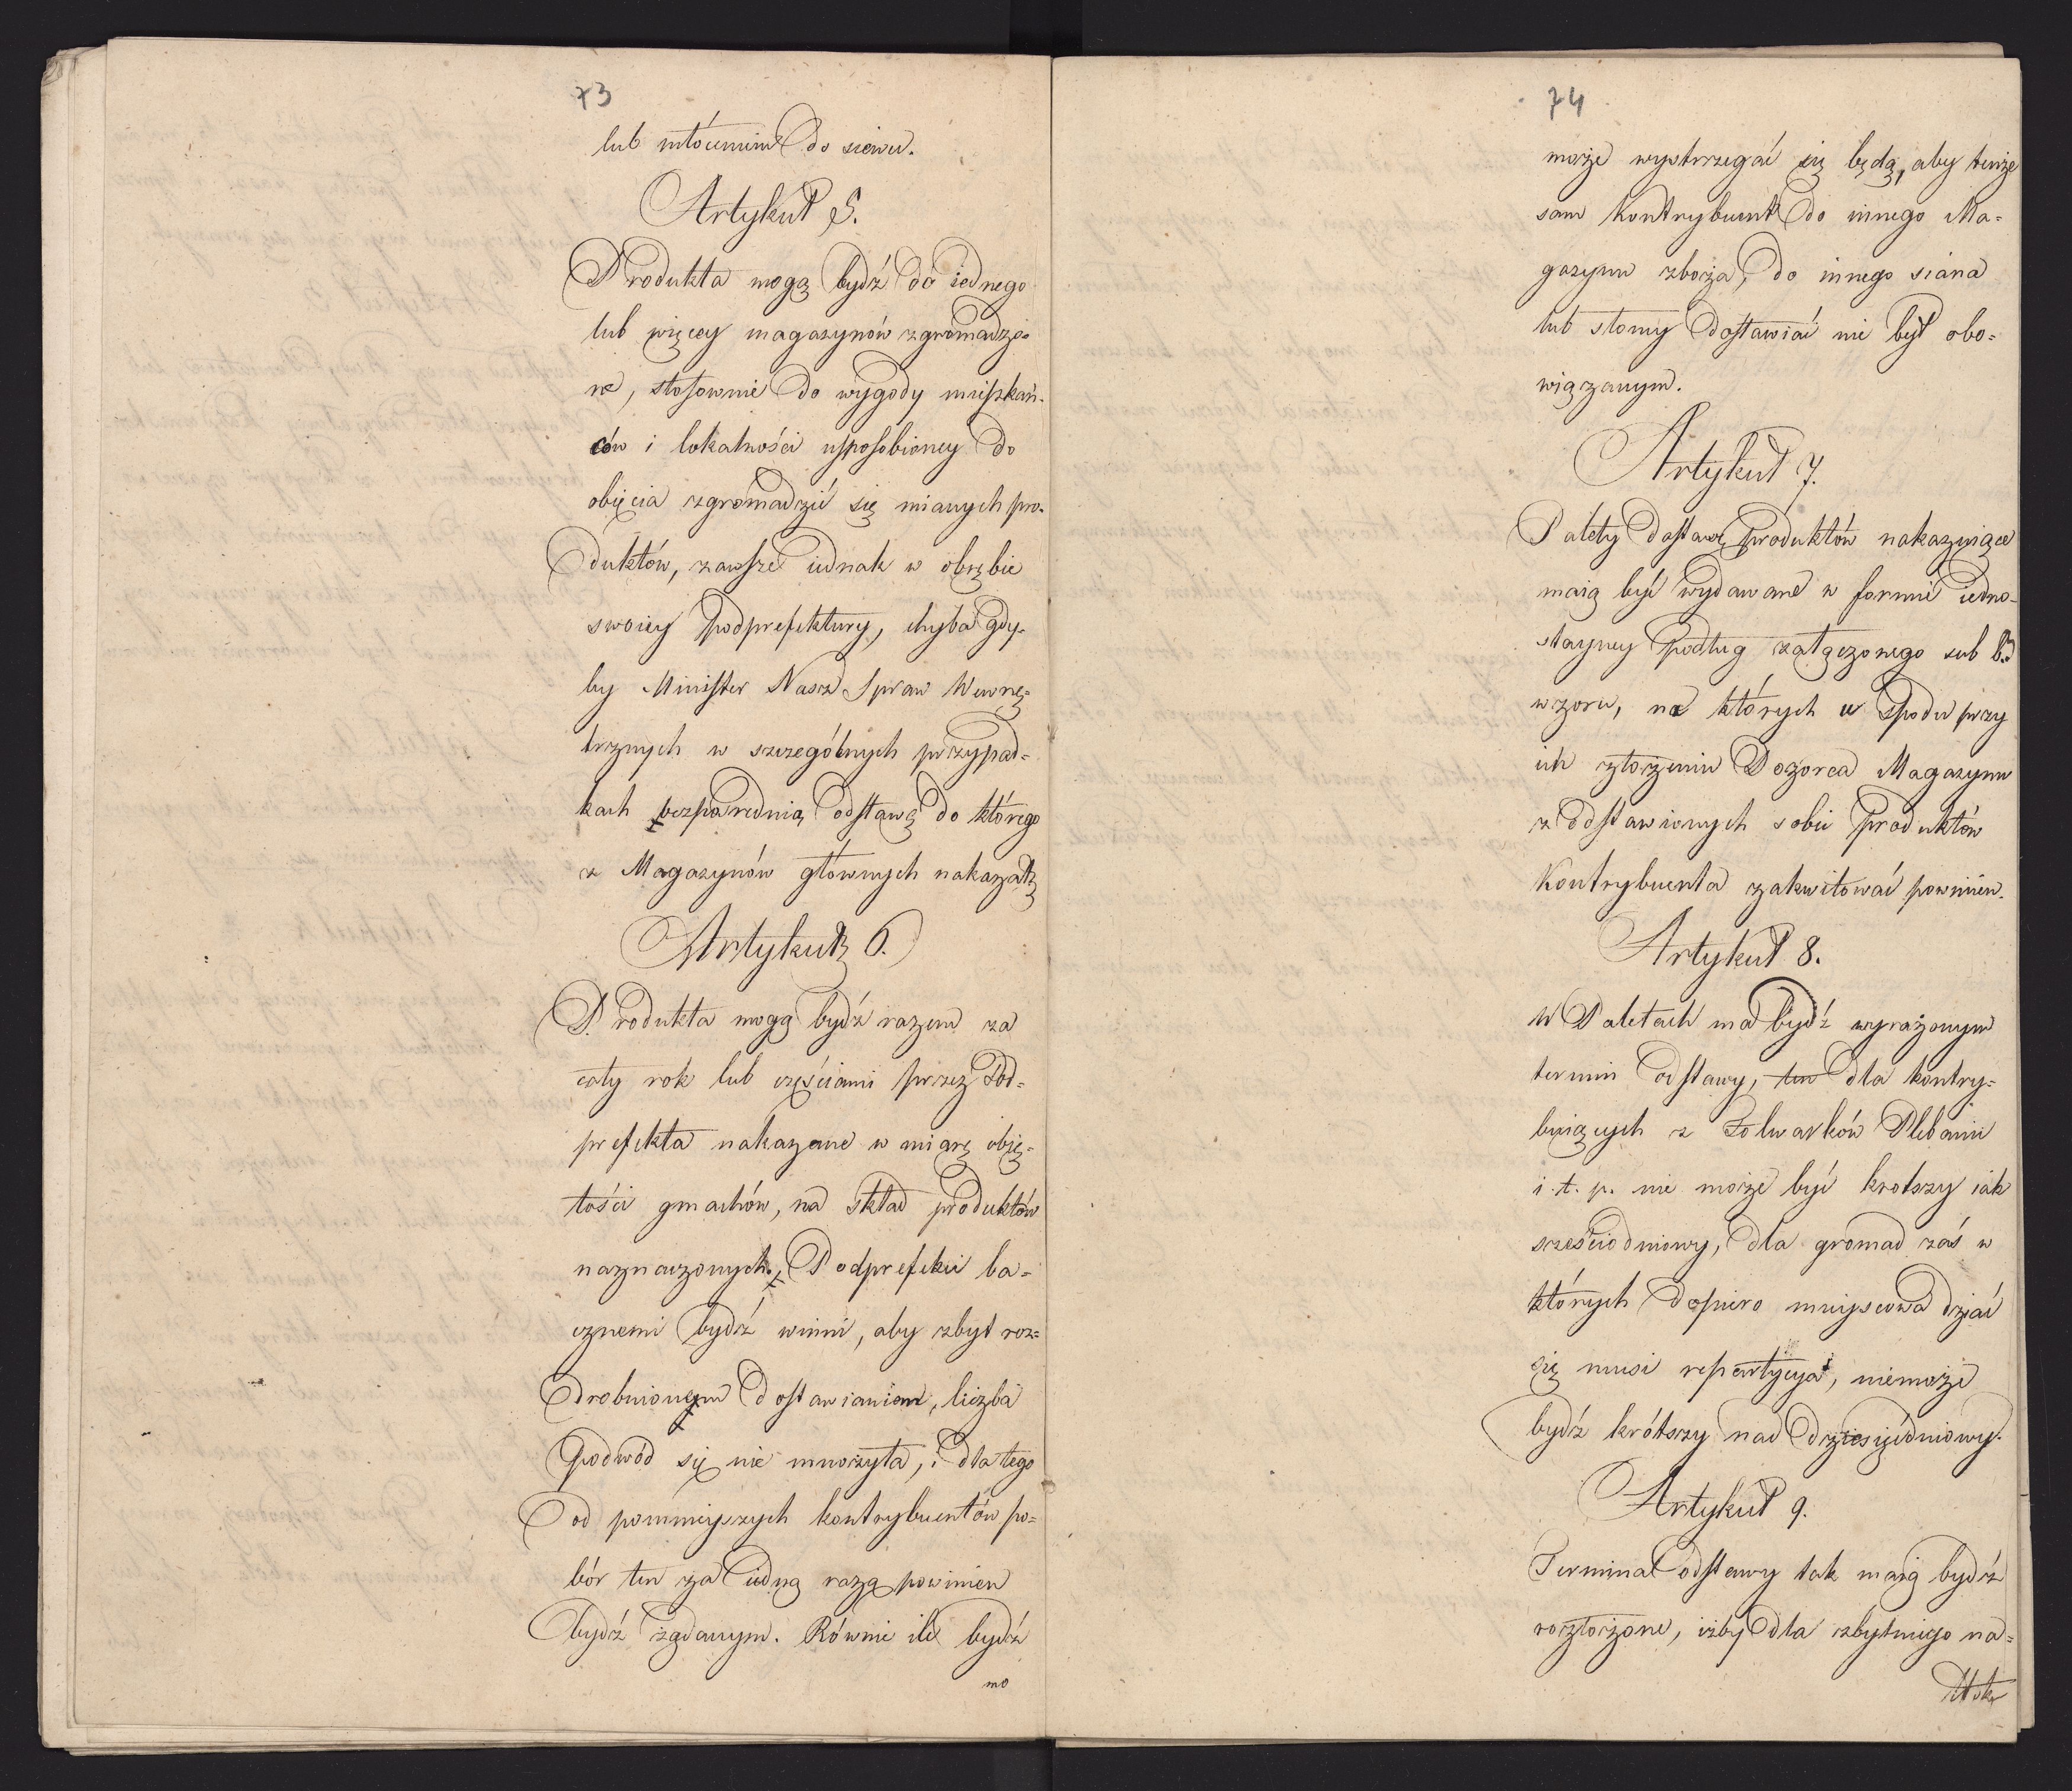 73
lub młócenim do siewu.
Artykuł 5.
Produkta mogą bydź do iednego
lub więcey magazynów zgromadzo-
ne, stosownie do wygody mieszkań-
ców i lokalności usposobioney do
obięcia zgromadzić się mianych pro-
duktów, zawsze iednak w obrębie
swoiey podprefektury, chyba gdy-
by Minister Nasz Spraw Wewnę-
trznych w szczególnych przypad-
kach bezpośrednią odstawę do którego
z Magazynów głównych nakazał
Artykuł 6.
Produkta mogą bydź razem za
cały rok lub częściami przez Pod-
prefekta nakazane w miarę obję-
tości gmachów, na skład produktów
naznaczonych. Podprefekci ba-
cznemi bydź winni, aby zbyt roz-
drobnionym dostawianiem, liczba
podwód się nie mnożyła, i dla tego
od pomnieyszych kontrybuentów po-
bór ten za iedną razą powinien
bydź zgdanym. Równie ile bydź
mo
74
może wystrzegać się będą, aby tenże
sam kontrybuent do innego Ma-
gazynu zboża, do innego siana
lub słomy dostawiać nie był obo-
wiązanym.
Artykuł 7.
Palety dostawę produktów nakazuiące
maią być wydawane w formie iedno-
stayney podług załączonego sub B.
wzoru, na których u spodu przy
ich złożeniu Dozorca Magazynu
z dostawionych sobie produktów
Kontrybuenta zakwitować powinien.
Artykuł 8.
W Paletach ma bydź wyrażonym
termin odstawy, ten dla kontry-
buiących z Folwarków Plebanii
i.t.p. nie może być krotszy iak
sześciodniowy, dla gromad zaś w
których dopiero mieyscowa dziać
się musi repartycya, niemoże
bydź krótszy nad dziesięćdniowy.
Artykuł 9.
Termina odstawy tak maią bydź
rozłożone, iżby dla zbytniego na-
tłoku